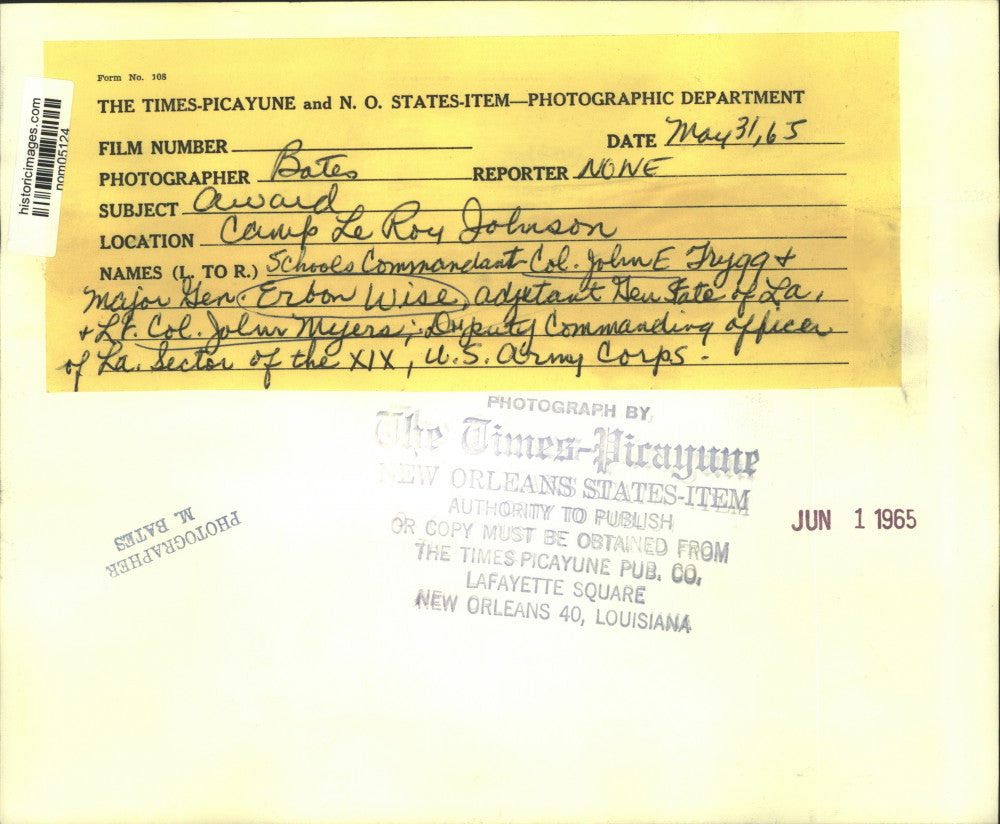 Form No. 108
THE TIMES-PICAYUNE and N. O. STATES-ITEM—PHOTOGRAPHIC DEPARTMENT
FILM NUMBER DATE May 31, 65
PHOTOGRAPHER Bates REPORTER NONE
SUBJECT Award
LOCATION Camp Le Roy Johnson
NAMES (L. TO R.) Schools Commandant Col. John E Trygg +
Major Gen. Erbon Wise, adjetant Gen State of La,
+ Lt. Col. John Myers; Deputy Commanding officer
of La. Sector of the XIX, U.S. Army Corps.
historicimages.com
nom05124
PHOTOGRAPH BY
The Times-Picayune
NEW ORLEANS STATES-ITEM
AUTHORITY TO PUBLISH
OR COPY MUST BE OBTAINED FROM
THE TIMES-PICAYUNE PUB. CO.
LAFAYETTE SQUARE
NEW ORLEANS 40, LOUISIANA
JUN 1 1965
PHOTOGRAPHER
M. BATES